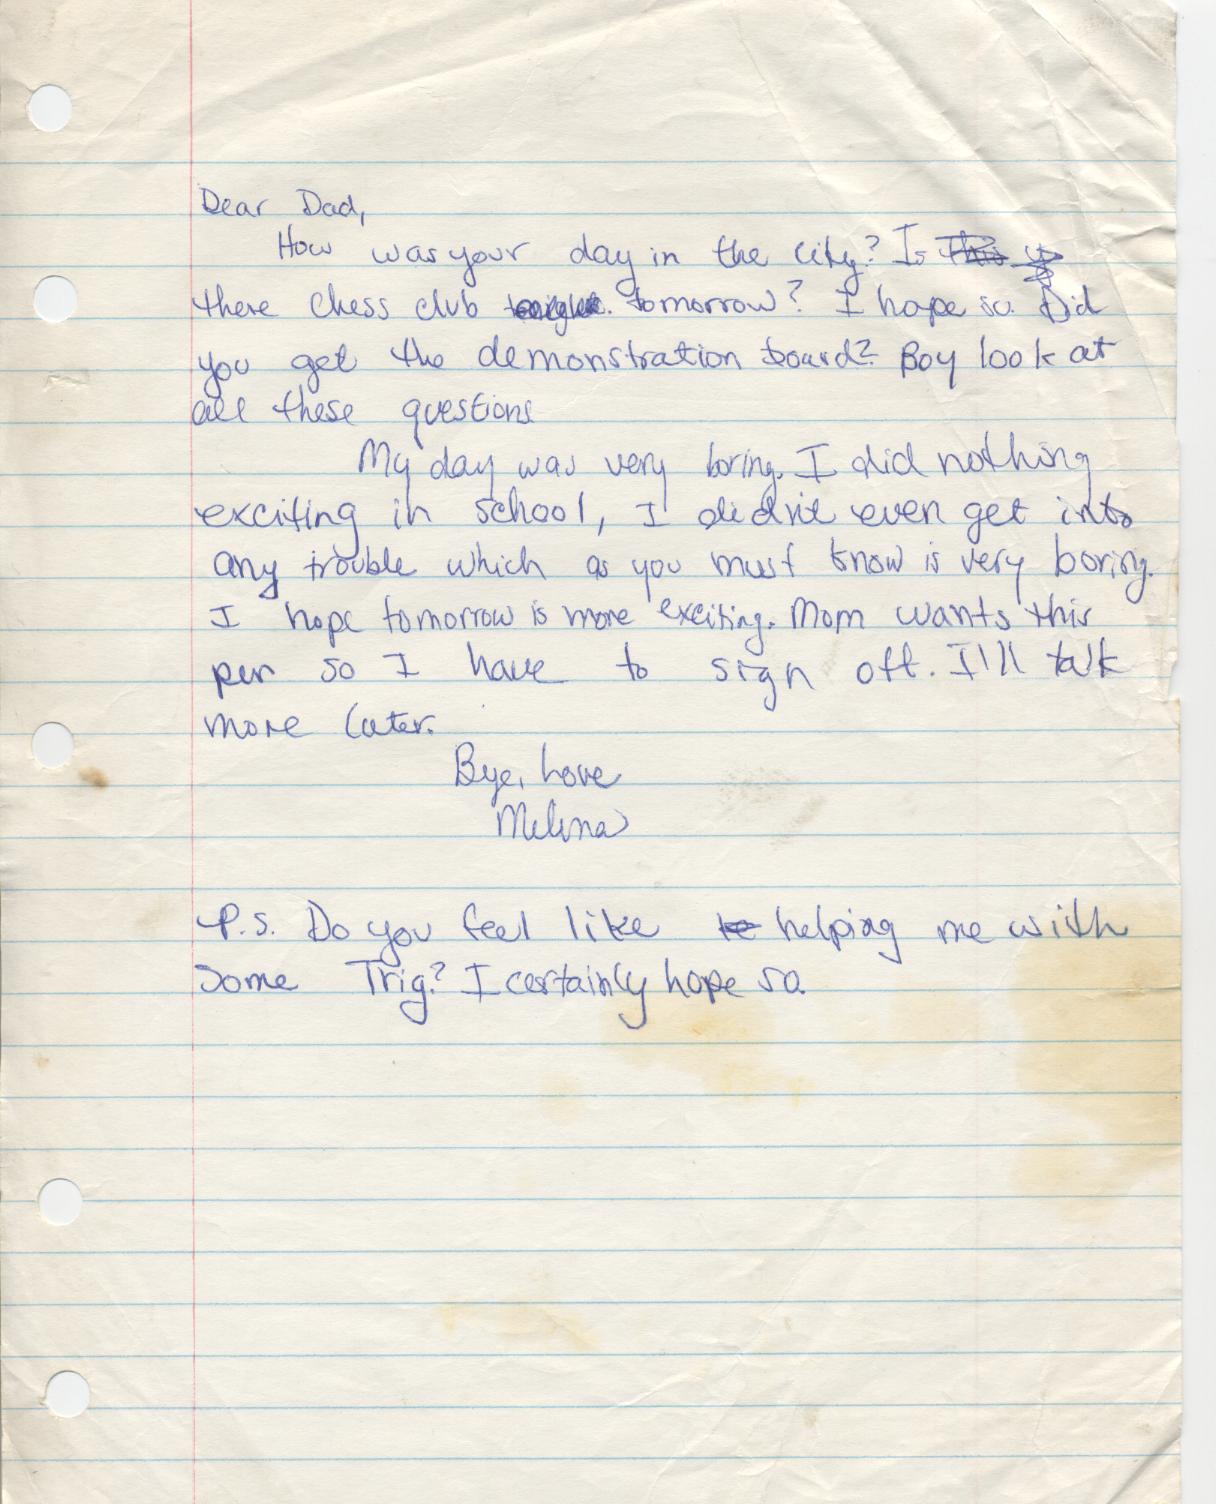 Dear Dad,
How was your day in the city? Is
there chess club tomorrow? I hope so. Did
you get the demonstration board? Boy look at
all these questions
My day was very boring. I did nothing
exciting in school, I didn't even get into
any trouble which as you must know is very boring.
I hope tomorrow is more exciting. Mom wants this
pen so I have to sign off. I'll talk
more later.
Bye, Love
Melina
P.S. Do you feel like helping me with
some Trig? I certainly hope so.